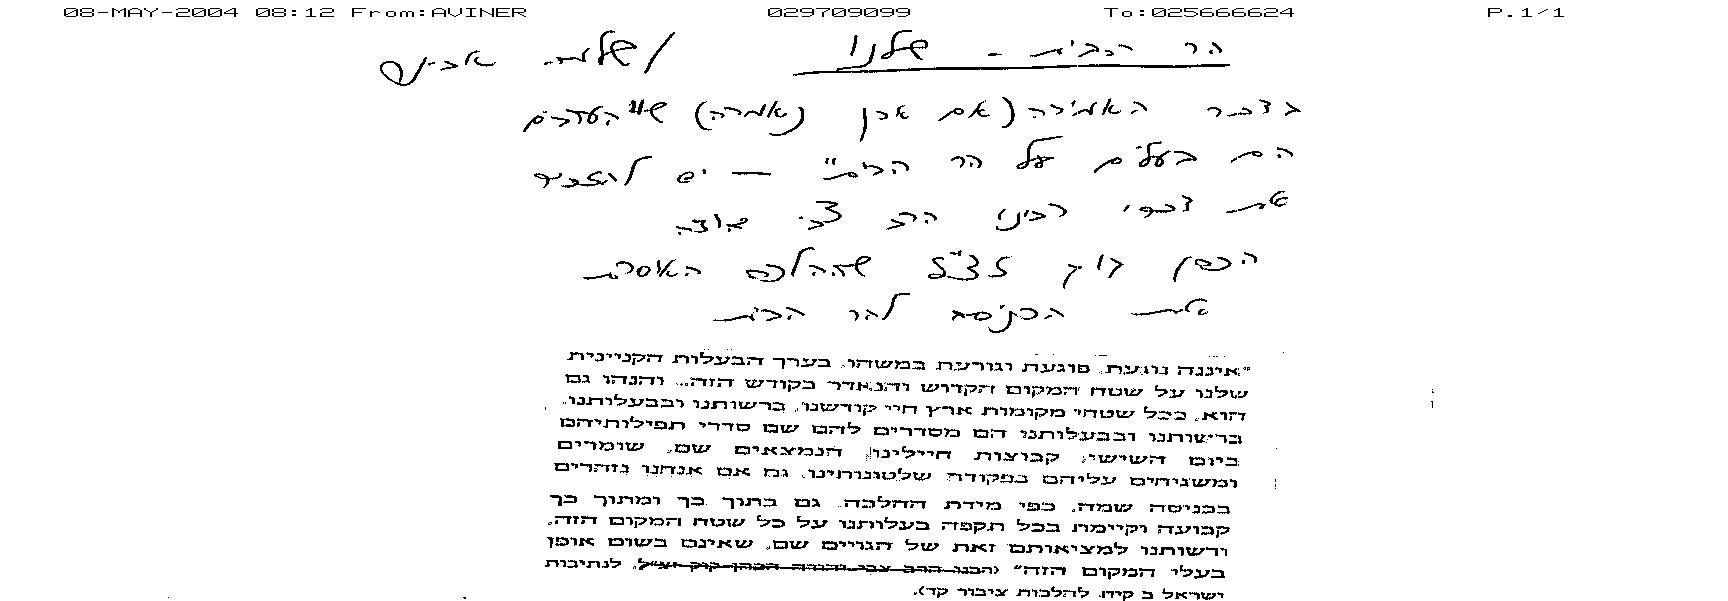 08-MAY-2004 08:12 From:AVINER 029709099 To:025666624 P.1/1
הר הבית - שלנו / שלמה אבינר
בדבר האמירה (אם אכן נאמרה) ש"הערבים
הם בעלים על הר הבית" — יש להזכיר
את דברי רבינו הרב צבי יהודה
הכהן קוק זצ"ל שההלכה האוסרת
את הכניסה להר הבית
"איננה נוגעת, פוגעת וגורעת במשהו, בערך הבעלות הקניינית
שלנו על שטח המקום הקדוש והנאדר בקודש הזה... והנהו גם
הוא, ככל שטחי מקומות ארץ חיי קודשנו, ברשותנו ובבעלותנו.
ברישותנו ובבעלותנו הם מסדרים להם שם סדרי תפילותיהם
ביום השישי, קבוצות חיילינו, הנמצאים שם, שומרים
ומשגיחים עליהם בפקודת שלטונותינו. גם אם אנחנו נזהרים
בכניסה שמה, כפי מידת ההלכה, גם בתוך כך ומתוך כך
קבועה וקיימת בכל תקפה בעלותנו על כל שטח המקום הזה,
ורשותנו למציאותם זאת של הגויים שם, שאינם בשום אופן
בעלי המקום הזה" (רבנו הרב צבי יהודה הכהן קוק זצ"ל, לנתיבות
ישראל ב קיח. להלכות ציבור קד).